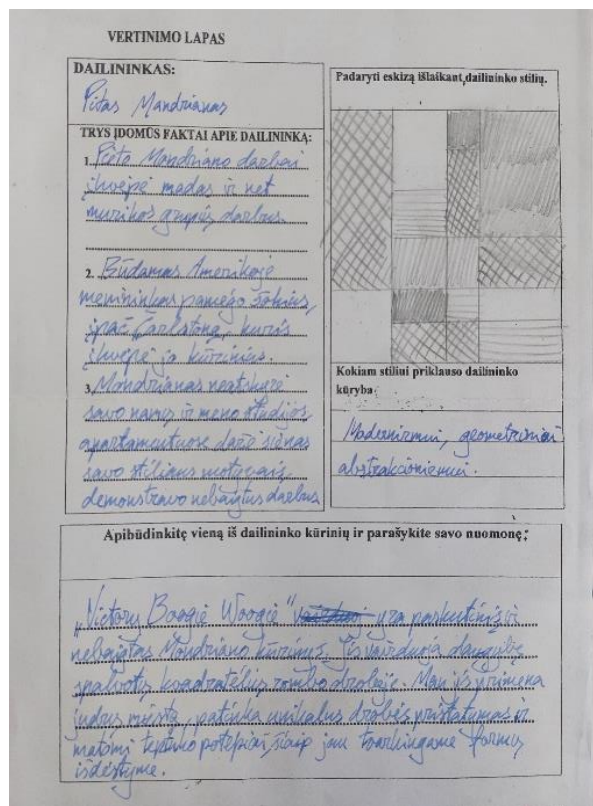 VERTINIMO LAPAS
DAILININKAS:
Pitas Mondrianas
TRYS ĮDOMŪS FAKTAI APIE DAILININKĄ:
1. Pieto Mondriano darbai
įkvėpė madas ir net
muzikos grupių darbus.
2. Būdamas Amerikoje
menininkas pamėgo šokius,
ypač „Čarlstoną, kuris
įkvėpė jo kūrinius.
3. Mondrianas neatskyrė
savo namų ir meno studijos,
apartamentuose dažė sienas
savo stiliaus motyvais,
demonstravo nebaigtus darbus
Padaryti eskizą išlaikant dailininko stilių.
Kokiam stiliui priklauso dailininko
kūryba
Modernizmui, geometriniai
abstrakcionizmui.
Apibūdinkitę vieną iš dailininko kūrinių ir parašykite savo nuomonę:
„Victory Boogie Woogie" yra paskutinis ir
nebaigtas Mondriano kūrinys. Jis vaizduoja daugybę
spalvotų kvadratėlių rombo drobėje. Man jis primena
judrų miestą, patinka unikalus drobės pristatymas ir
matomi teptuko potėpiai šiaip jau tvarkingame formų
išdėstyme.